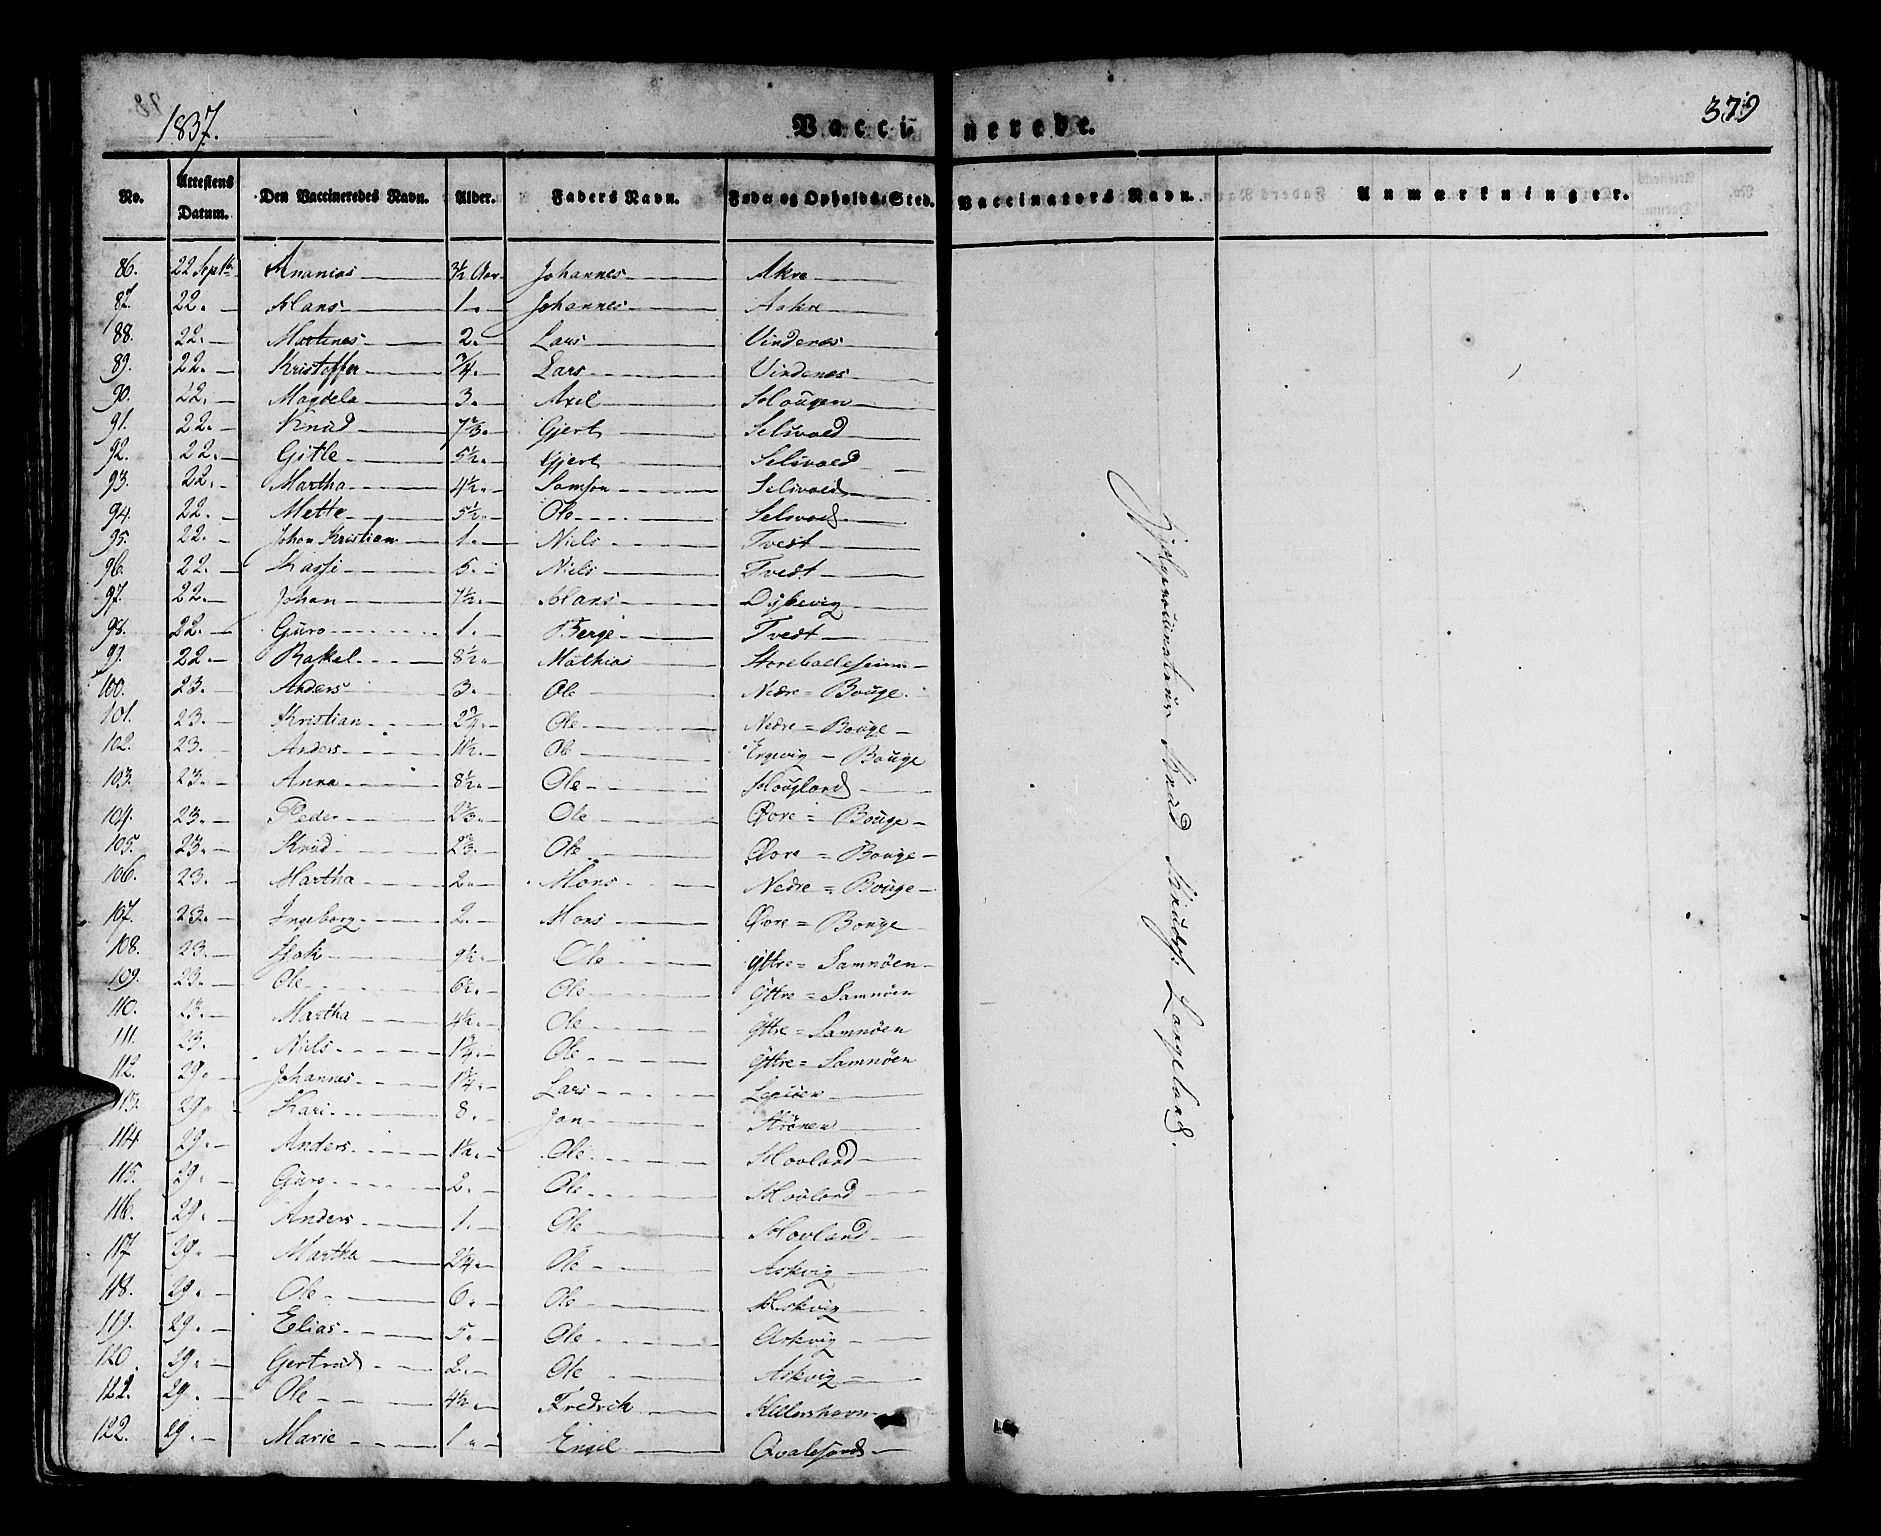 1837.
Vaccinerede.
379
No. Attestens Datum. Den Vaccineredes Navn. Alder. Faders Navn. Føde og Opholds-Sted. Vaccinators Navn. Anmærkninger.
86. 22 Septb Ananias 3½ Aar Johannes Akre
87. 22. Hans 1. Johannes Aakre
88. 22. Martines 2. Lars Vindenes
89. 22. Kristoffer ¾. Lars Vindenes
90. 22. Magdela 3. Axel Hougen
91. 22. Knud 7⅔. Gjert Selsvoed
92. 22. Gitle 5½. Gjert Selsvoed
93. 22. Martha 4½. Samson Selsvoed
94. 22. Mette 5½. Ole Selsvoed
95. 22. Johan Kristian 1. Niels Tvedt
96. 22. Kassi 5. Niels Tvedt
97. 22. Johan 7½. Hans Dybevig
98. 22. Guro 1. Berge Tvedt
99. 22. Rakel 8½. Mathias Storekalleseim
100. 23. Anders 3. Ole Nedre = Bouge
101. 23. Kristian 2¾. Ole Nedre = Bouge
102. 23. Anders 1½. Ole Ergvig - Bouge
103. 23. Anna 8½. Ole Hougland
104. 23. Peder 2⅔. Ole Øvre = Bouge
105. 23. Knud 2⅔. Ole Øvre = Bouge
106. 23. Martha 2. Mons Nedre = Bouge
107. 23. Ingeborg 2. Mons Øvre = Bouge
108. 23. Isak 9½. Ole Yttre = Samnøen
109. 23. Ole 6½. Ole Yttre = Samnøen
110. 23. Martha 4½. Ole Yttre = Samnøen
111. 23. Niels 1¾. Ole Yttre = Samnøen
112. 29. Johannes 1¾. Lars Lepsøen
113. 29. Kari 8. Jon Strønen
114. 29. Anders 1½. Ole Hovland
115. 29. Guro 2. Ole Hovland
116. 29. Anders 1. Ole Hovland
117. 29. Martha 2¼. Ole Askvig
118. 29. Ole 6. Ole Askvig
119. 29. Elias 5. Ole Askvig
120. 29. Gertrud 2. Ole Askvig
121. 29. Ole 4½. Fredrik Hillershavn
122. 29. Marie 1. Engel Qvalesund
Hjelpevaccinateur Knud Knuds. Langeland.